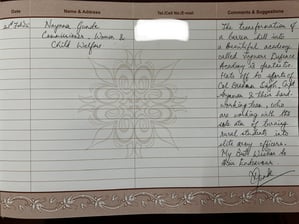 Date Name & Address Tel./Cell No./E-mail Comments & Suggestions
Nayana Gunde
Commissioner, Women &
Child Welfare
The transformation of
a barren hill into
a beautiful academy
called Defence
Academy is fantastic
Hats off to efforts of
Col
& their hard-
working, who
are working with the
sole aim of turning
rural students into
elite army officers.
My Best Wishes to
Endeavour